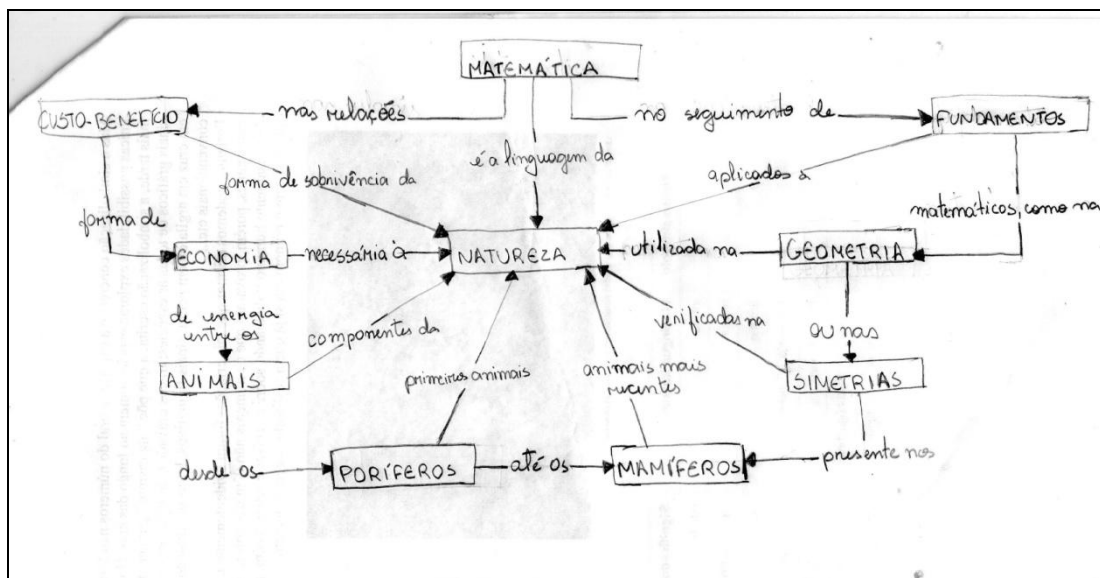 MATEMÁTICA
CUSTO-BENEFÍCIO
nas relações
no seguimento de
FUNDAMENTOS
é a linguagem da
forma de sobrivência da
aplicados à
forma de
matemáticos, como na
ECONOMIA
necessária à
NATUREZA
utilizada na
GEOMETRIA
de energia
entre os
componentes da
primeiros animais
animais mais
recentes
verificadas na
ou nas
ANIMAIS
SIMETRIAS
desde os
PORÍFEROS
até os
MAMÍFEROS
presente nos